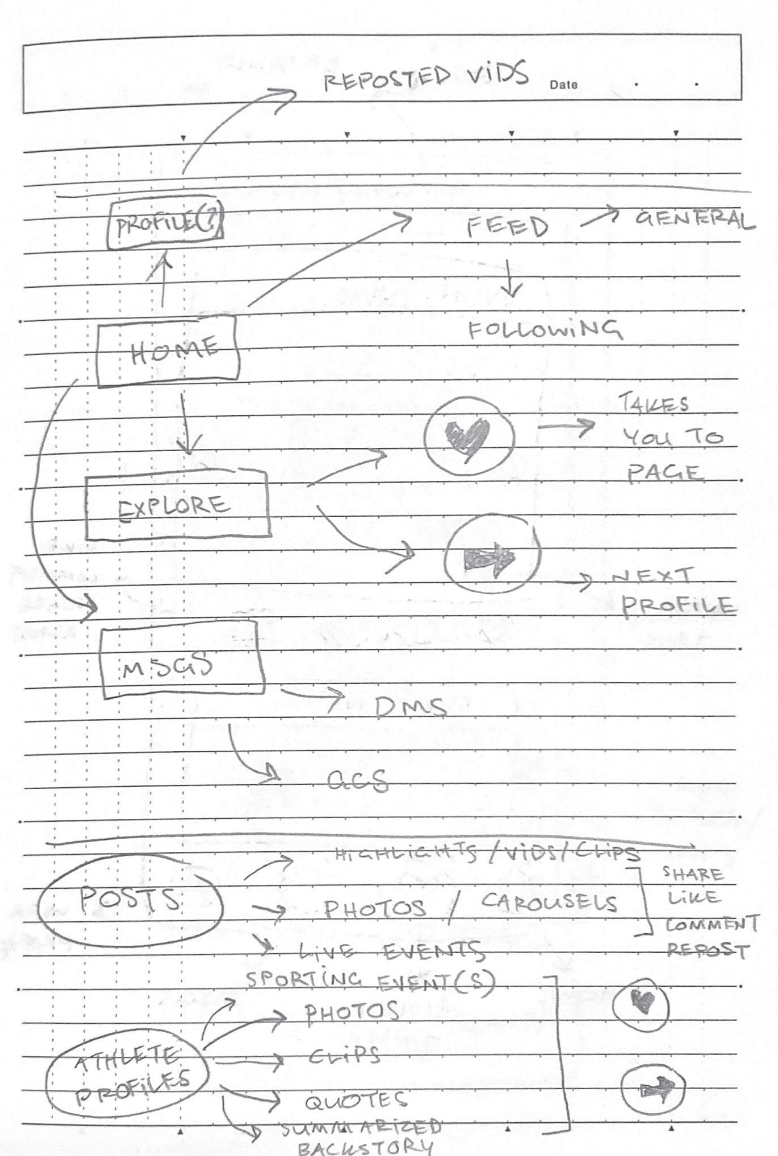 REPOSTED ViDS
Date
PROFILE(?)
FEED
GENERAL
FOLLOWiNG
HOME
TAKES
YOU TO
PAGE
EXPLORE
NEXT
PROFiLE
MSGS
DMS
GCS
HiGHLiGHTS / ViDS / CLiPS
POSTS
PHOTOS / CAROUSELS
SHARE
LiKE
COMMENT
REPOST
LiVE EVENTS
SPORTiNG EVENT(S)
PHOTOS
ATHLETE
PROFiLES
CLiPS
QUOTES
SUMMARiZED
BACKSTORY